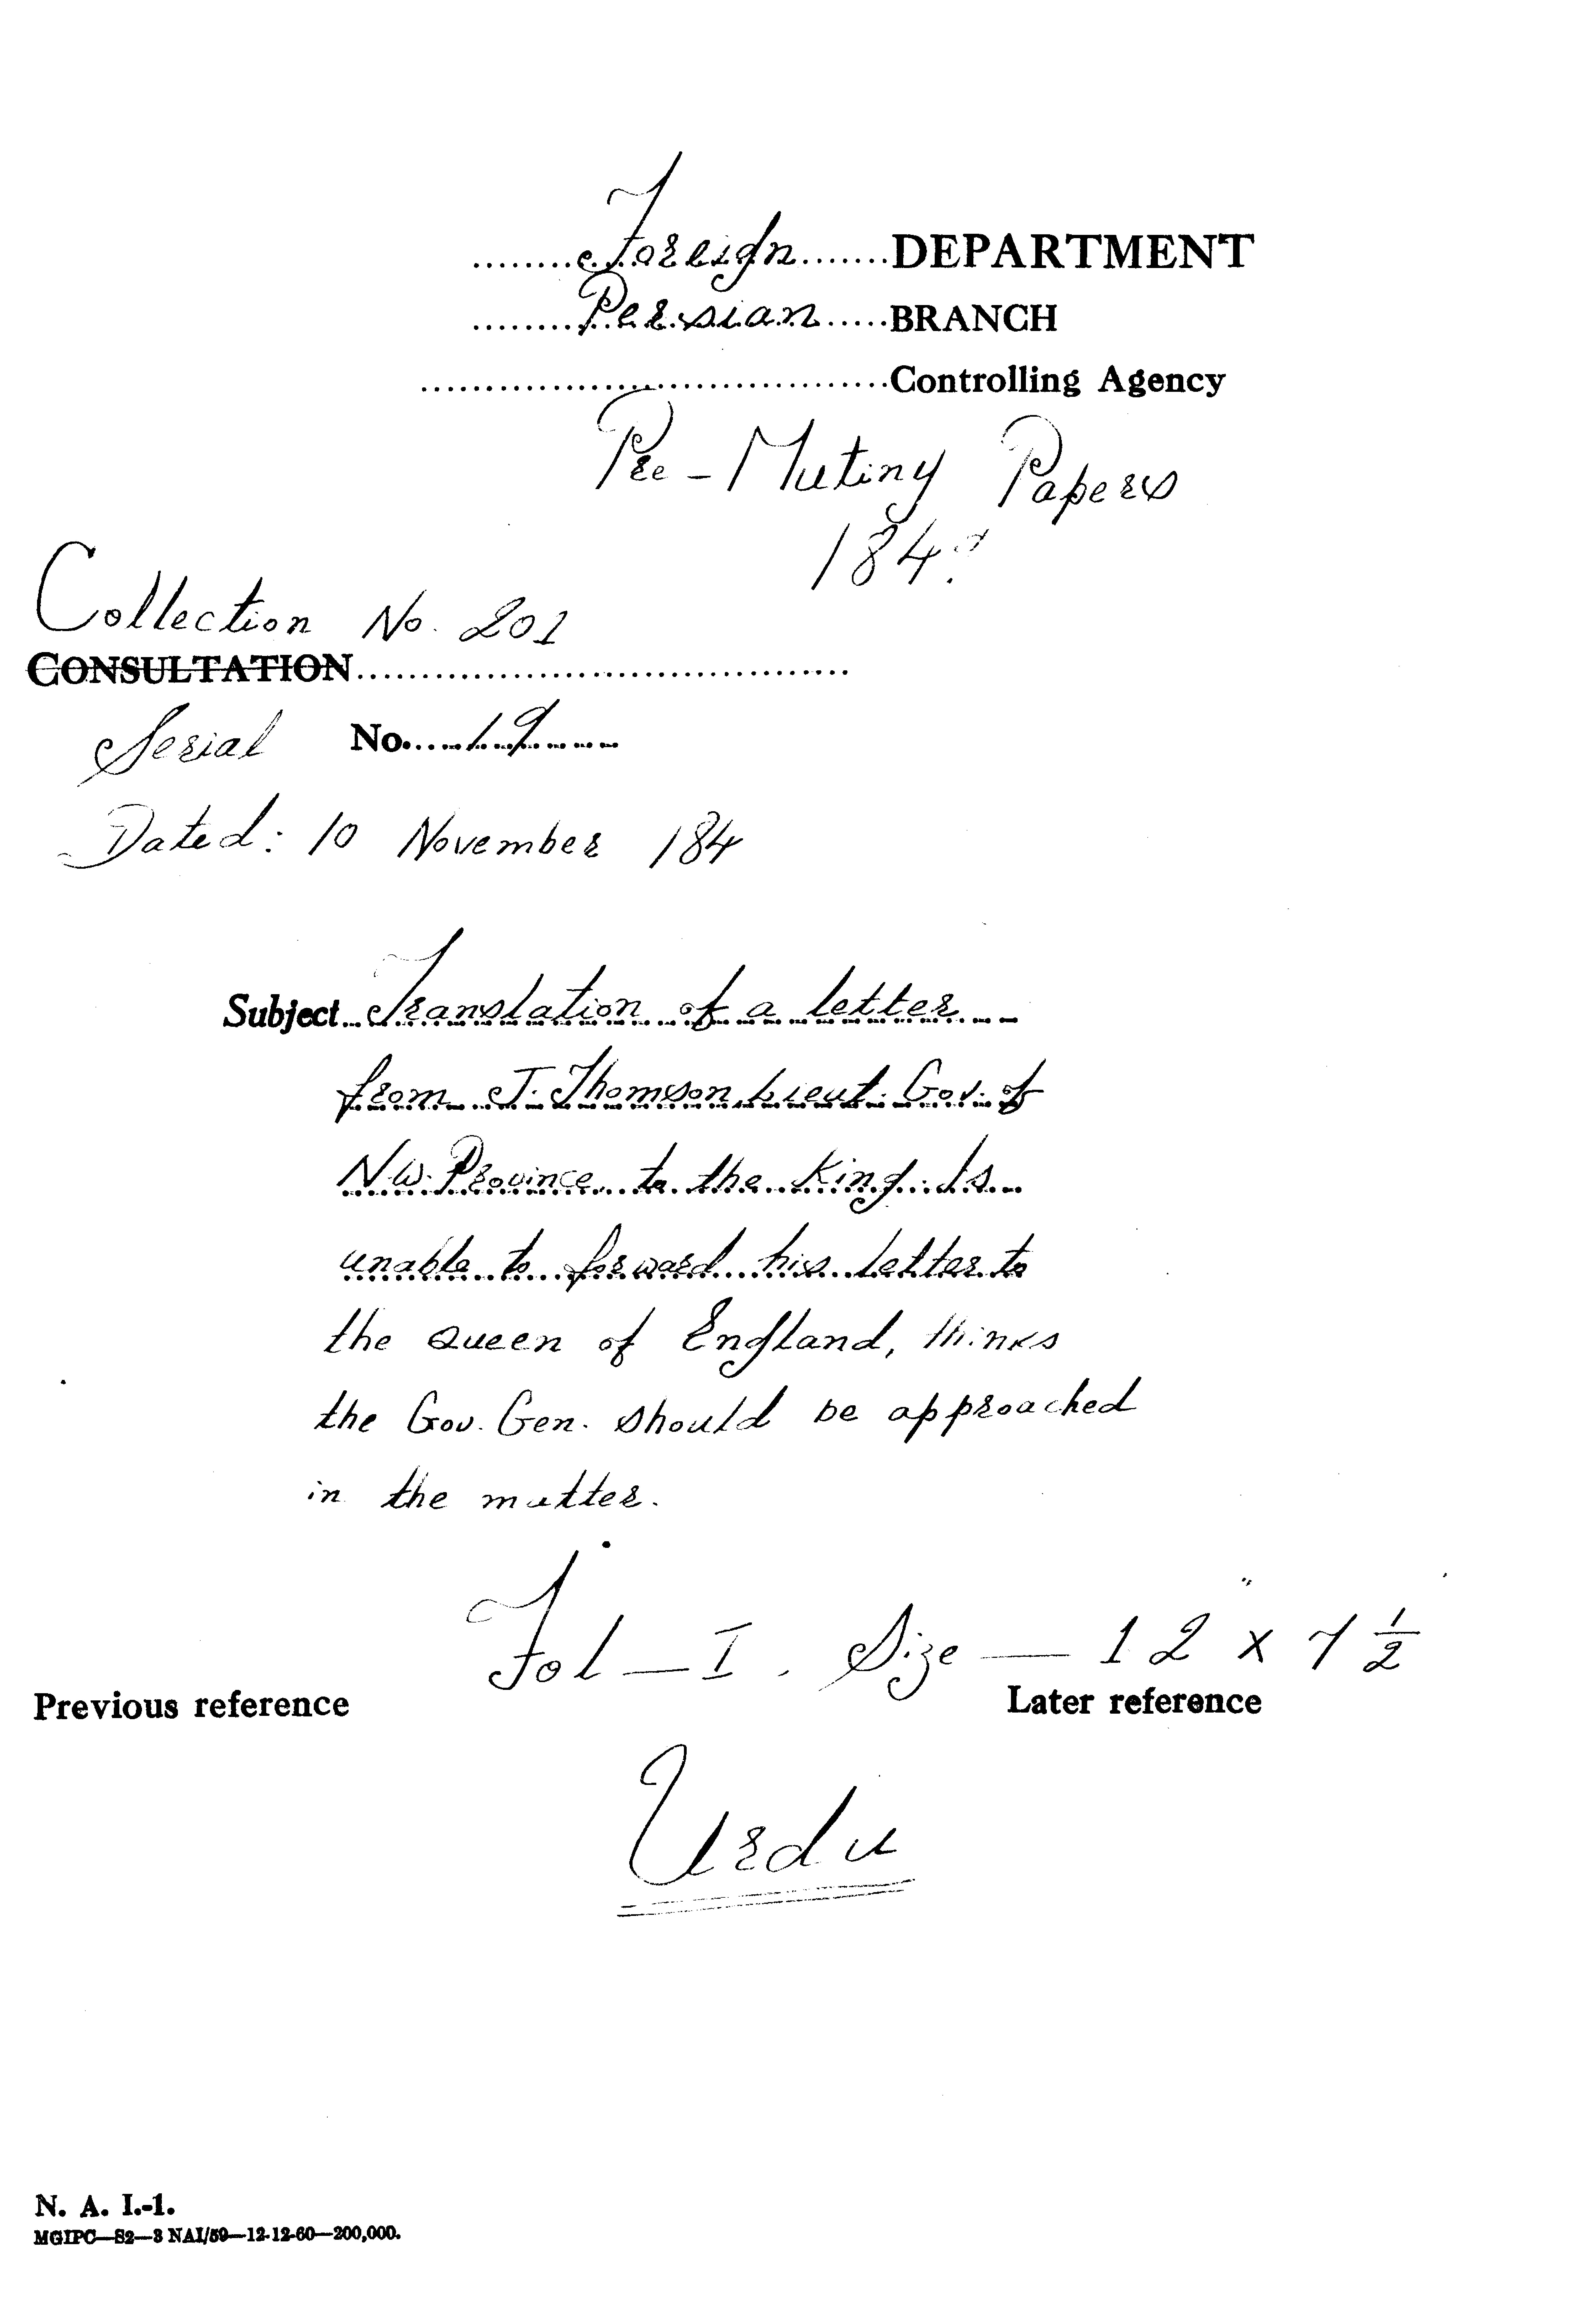 Foreign DEPARTMENT
Persian BRANCH
Controlling Agency
Pre-Mutiny Papers
184?
Collection No. 201
CONSULTATION
Serial No. 19
Dated: 10 November 184
Subject Translation of a letter
from J. Thomson Lieut. Gov. of
N.W. Province to the King. Is
unable to forward his letter to
the Queen of England, thinks
the Gov. Gen. should be approached
in the matter.
Fol — I. Size — 12" x 7 1/2
Previous reference Later reference
Urdu
N. A. I.-1.
MGIPC—S2—3 NAI/59—12-12-60—200,000.